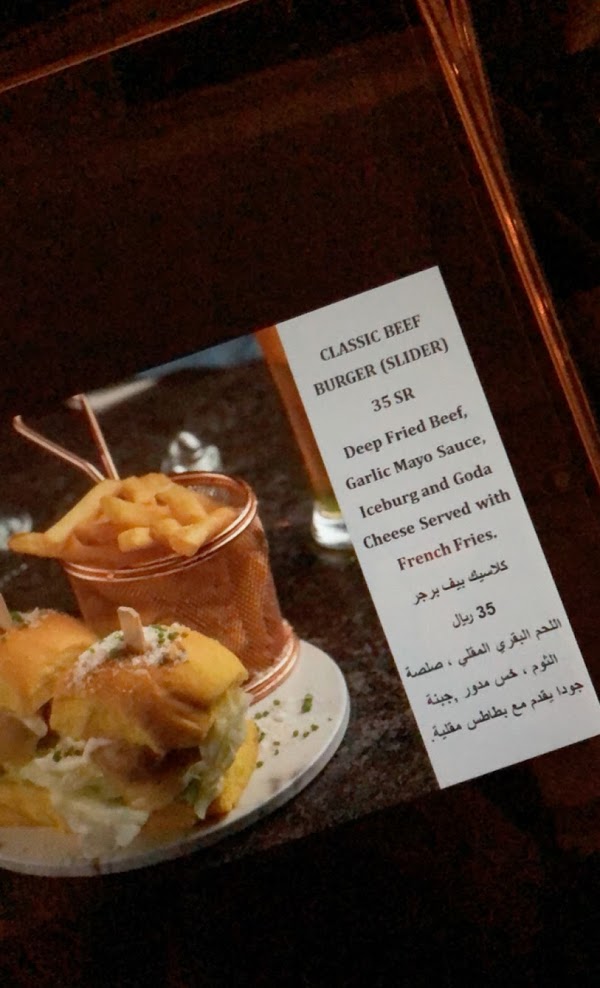 CLASSIC BEEF
BURGER (SLIDER)
35 SR
Deep Fried Beef,
Garlic Mayo Sauce,
Iceburg and Goda
Cheese Served with
French Fries.
كلاسيك بيف برجر
35 ريال
اللحم البقري المقلي ، صلصة
الثوم ، خس مدور ,جبنة
جودا يقدم مع بطاطس مقلية.